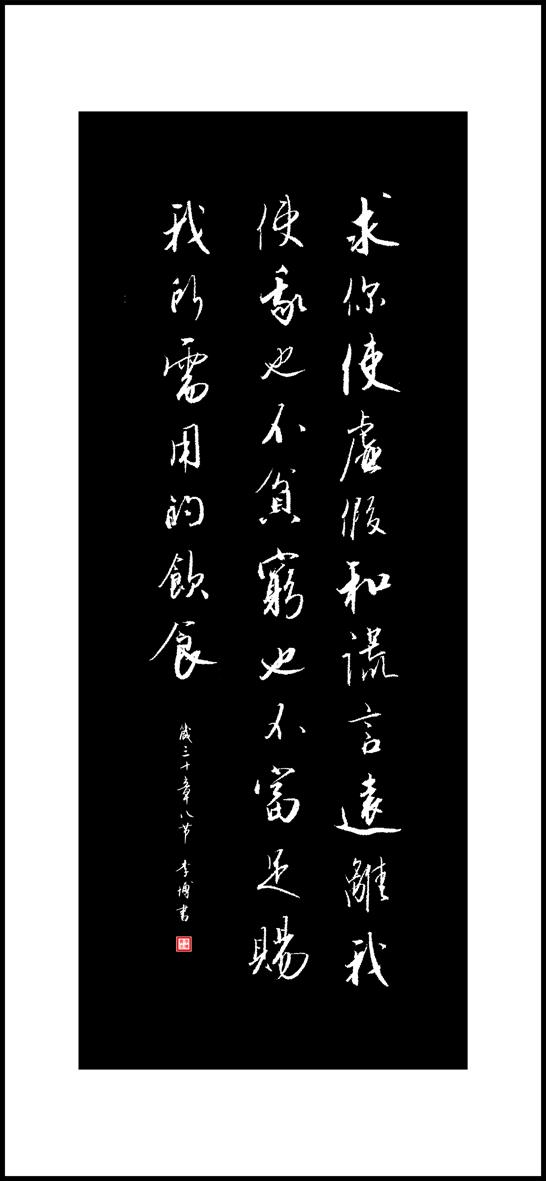 求你使虛假和謊言遠離我
使我也不貧窮也不富足賜
我所需用的飲食
箴三十章八节 李博書